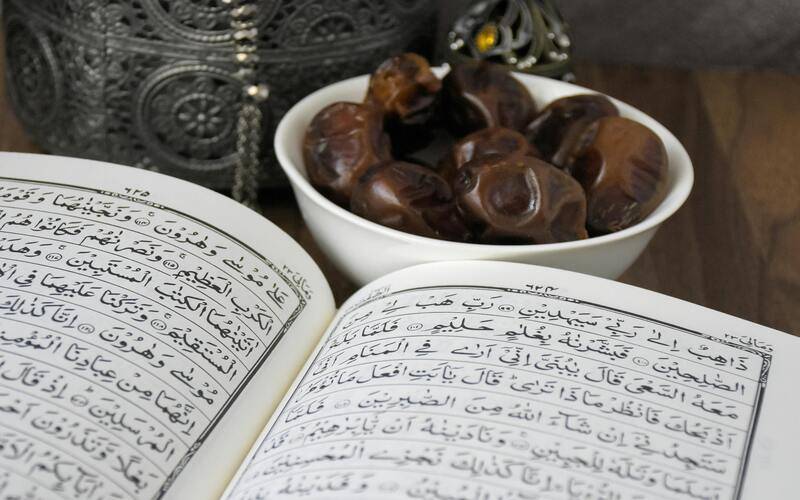 ومالی ٢٣
٦٢٤
الصّٰفّٰت
ذَاهِبٌ اِلٰى رَبِّيْ سَيَهْدِيْنِ رَبِّ هَبْ لِيْ مِنَ
الصّٰلِحِيْنَ فَبَشَّرْنٰهُ بِغُلٰمٍ حَلِيْمٍ فَلَمَّا بَلَغَ
مَعَهُ السَّعْيَ قَالَ يٰبُنَيَّ اِنِّيْٓ اَرٰى فِي الْمَنَامِ اَنِّيْٓ
اَذْبَحُكَ فَانْظُرْ مَاذَا تَرٰى قَالَ يٰٓاَبَتِ افْعَلْ مَا تُؤْمَرُ
سَتَجِدُنِيْٓ اِنْ شَآءَ اللّٰهُ مِنَ الصّٰبِرِيْنَ فَلَمَّآ
اَسْلَمَا وَتَلَّهٗ لِلْجَبِيْنِ وَنَادَيْنٰهُ اَنْ يّٰٓاِبْرٰهِيْمُ قَدْ
اِنَّا كَذٰلِكَ نَجْزِي الْمُحْسِنِيْنَ
الْمُبِيْنُ وَفَدَيْنٰهُ
ومالی ٢٣
٦٢٥
عَلٰى مُوْسٰى وَهٰرُوْنَ وَنَجَّيْنٰهُمَا وَقَوْمَهُمَا
الْكَرْبِ الْعَظِيْمِ وَنَصَرْنٰهُمْ فَكَانُوْا هُمُ
اٰتَيْنٰهُمَا الْكِتٰبَ الْمُسْتَبِيْنَ
الْمُسْتَقِيْمَ وَتَرَكْنَا عَلَيْهِمَا فِي
مُوْسٰى وَهٰرُوْنَ اِنَّا كَذٰلِكَ
اِنَّهُمَا مِنْ عِبَادِنَا
الْمُرْسَلِيْنَ اِذْ قَالَ
بَعْلًا وَّتَذَرُوْنَ
اٰبَآئِكُمُ